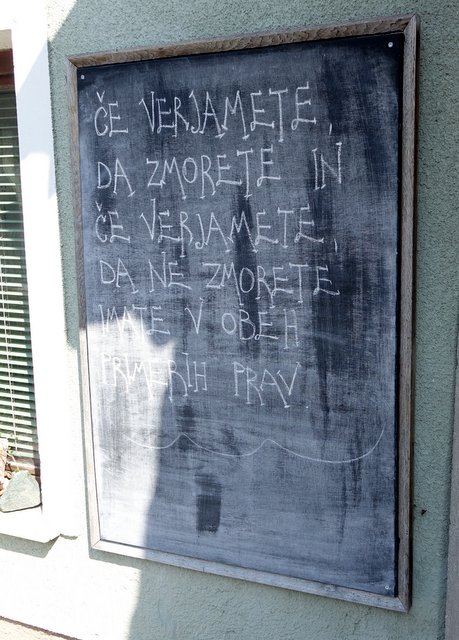 ČE VERJAMETE,
DA ZMORETE IN
ČE VERJAMETE,
DA NE ZMORETE
IMATE V OBEH
PRIMERIH PRAV.